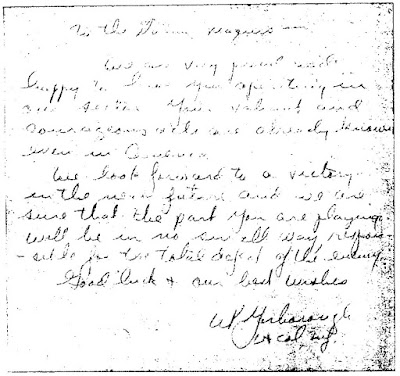 To the
We are very proud and
happy to have you operating in
our sector. Your valiant and
courageous acts are already known
even in America
We look forward to a victory
in the near future and we are
sure that the part you are playing
will be in no small way respon-
-sible for the total defeat of the enemy.
Good luck & our best wishes
WP Yarborough